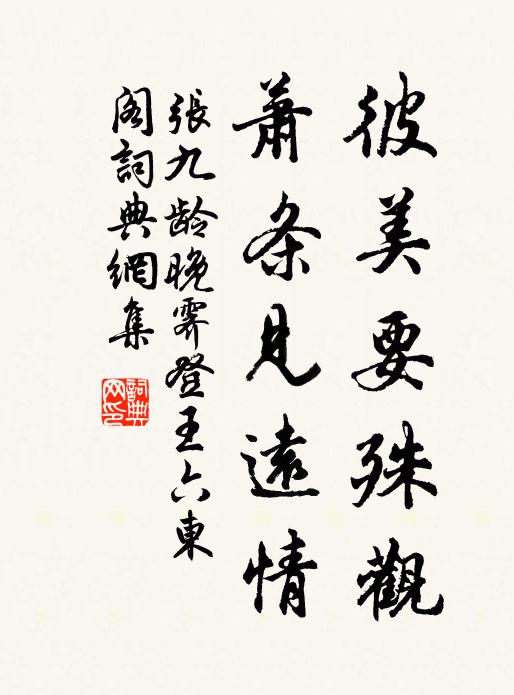 彼美要殊觀
蕭条見遠情
張九龄晚霽登王六東
阁詞典網集
詞典
网印